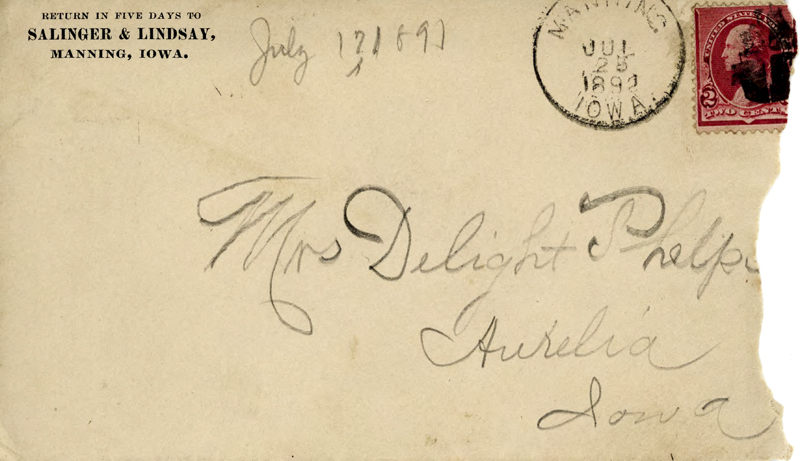 RETURN IN FIVE DAYS TO
SALINGER & LINDSAY,
MANNING, IOWA.
July
MANNING
JUL
25
1892
IOWA.
UNITED STATES
2
TWO CENTS
Mrs Delight Phelps
Aurelia
Iowa